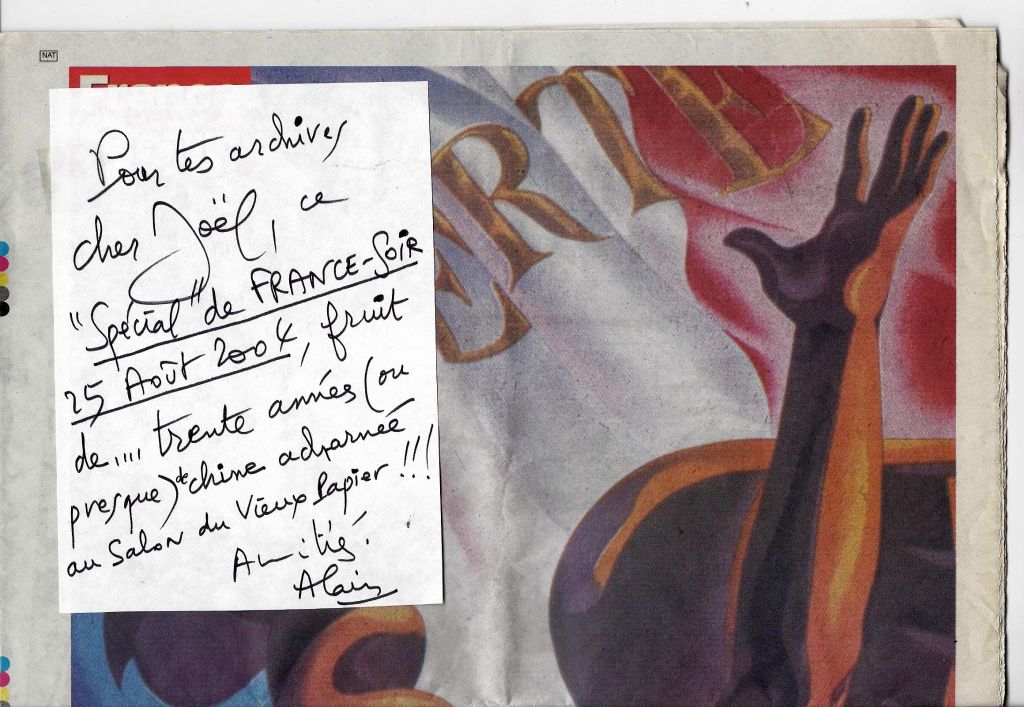 NAT
France
Pour tes archives
cher Joël, ce
"Spécial" de FRANCE-SOIR
25 Août 2004, fruit
de.... trente années (ou
presque) de chine acharnée
au Salon du Vieux Papier !!!
Amitiés.
Alain
RTE